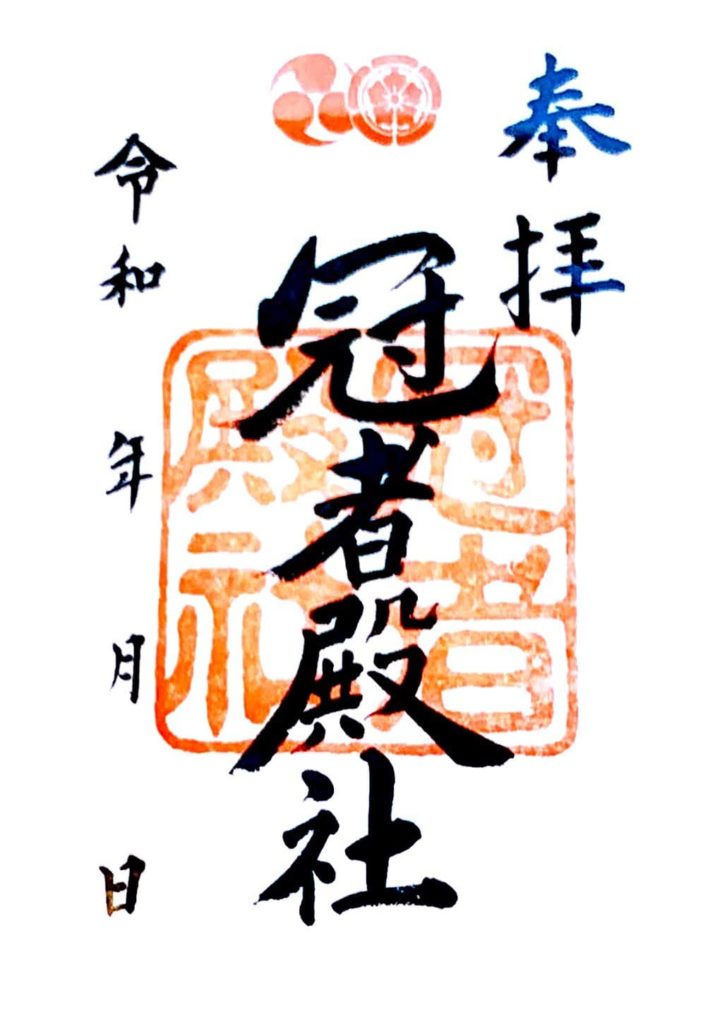 奉拝
冠者殿社
冠者
殿社
令和 年 月 日